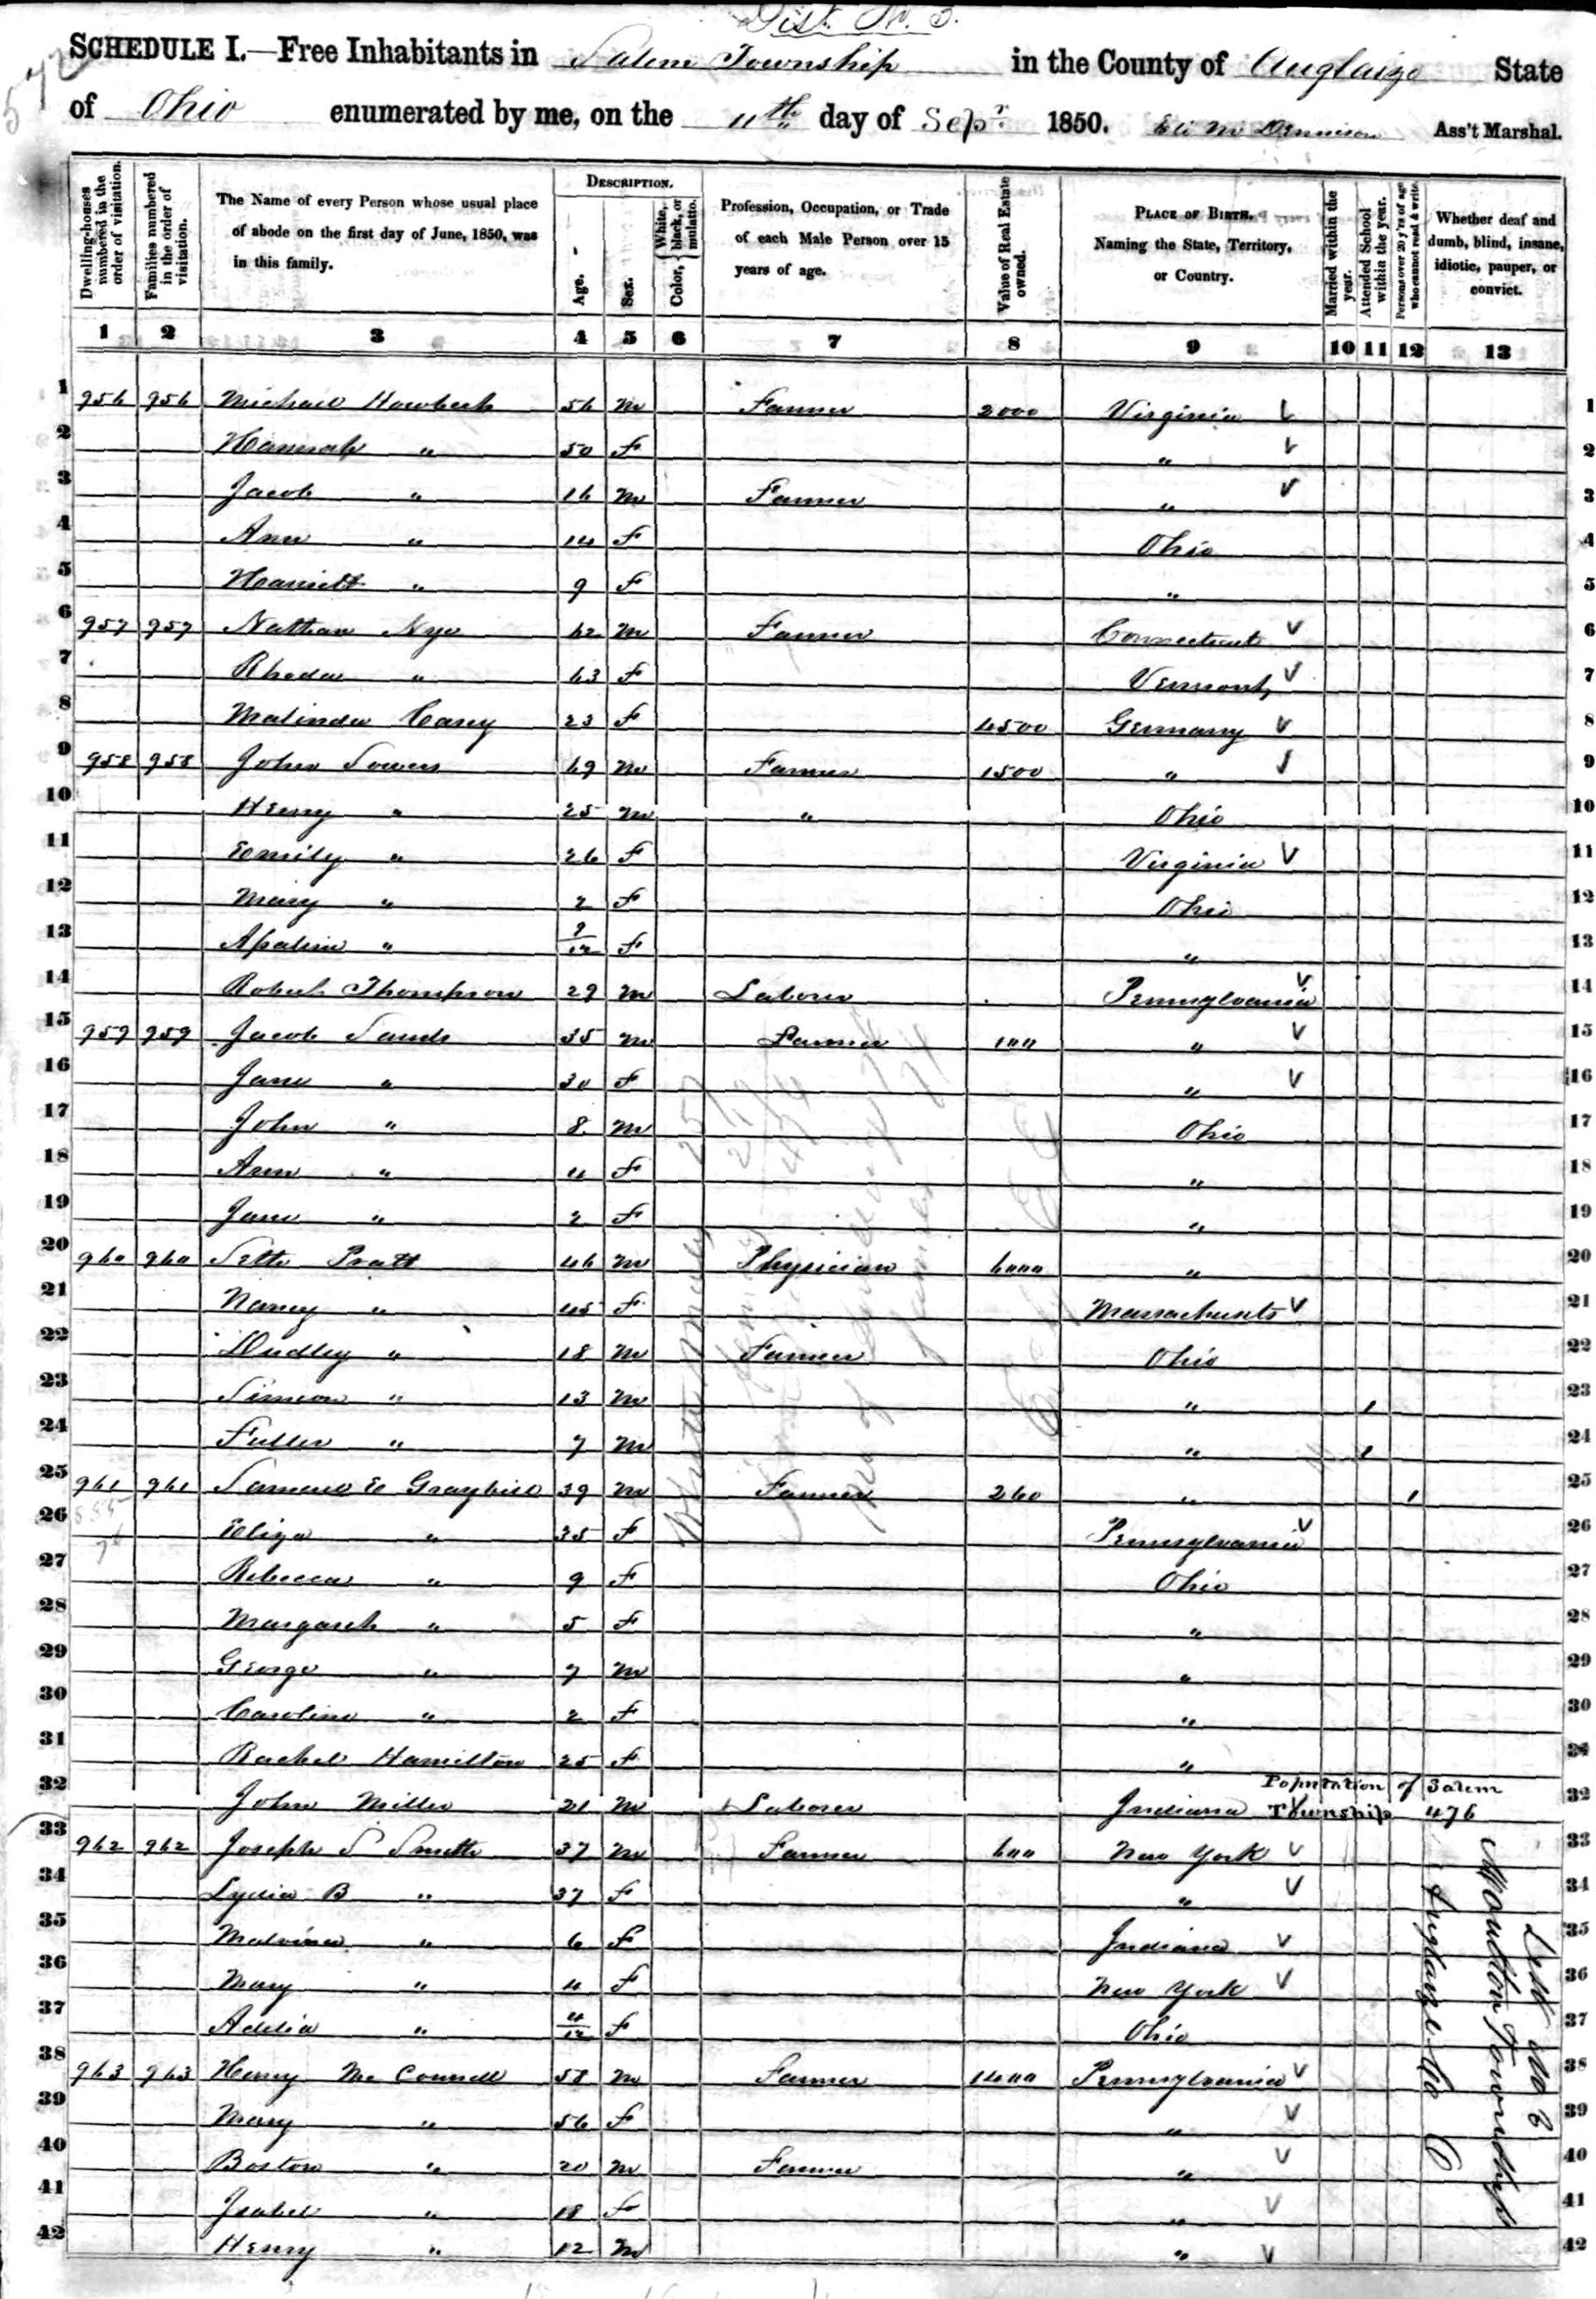 Dist. No. 3.
SCHEDULE I.—Free Inhabitants in Salem Township in the County of Auglaize State
of Ohio enumerated by me, on the 11th day of Sepr. 1850. Eli M Dennison Ass't Marshal.
Dwelling-houses numbered in the order of visitation.
Families numbered in the order of visitation.
The Name of every Person whose usual place of abode on the first day of June, 1850, was in this family.
DESCRIPTION.
Age.
Sex.
Color, { White, black, or mulatto.
Profession, Occupation, or Trade of each Male Person over 15 years of age.
Value of Real Estate owned.
PLACE OF BIRTH. Naming the State, Territory, or Country.
Married within the year.
Attended School within the year.
Persons over 20 y'rs of age who cannot read & write.
Whether deaf and dumb, blind, insane, idiotic, pauper, or convict.
1 2 3 4 5 6 7 8 9 10 11 12 13
1 956 956 Michael 56 M Farmer 2000 Virginia 1
2 Hannah " 50 F " 2
3 Jacob " 16 M Farmer " 3
4 Ann " 14 F Ohio 4
5 Harriett " 9 F " 5
6 957 957 Nathan Nye 62 M Farmer Connecticut 6
7 Rhoda " 63 F Vermont 7
8 Malinda Carey 23 F 4500 Germany 8
9 958 958 John Sowers 69 M Farmer 1500 " 9
10 Henry " 25 M " Ohio 10
11 Emily " 26 F Virginia 11
12 Mary " 2 F Ohio 12
13 " 9/12 F " 13
14 Robert Thompson 29 M Laborer Pennsylvania 14
15 959 959 Jacob Sands 35 M Farmer 100 " 15
16 Jane " 30 F " 16
17 John " 8 M Ohio 17
18 Ann " 4 F " 18
19 Jane " 2 F " 19
20 960 960 Seth Pratt 46 M Physician 6000 " 20
21 Nancy " 45 F Massachusets 21
22 Dudley " 18 M Farmer Ohio 22
23 Simeon " 13 M " 1 23
24 Fuller " 7 M " 1 24
25 961 961 Samuel E Graybill 39 M Farmer 260 " 1 25
26 Eliza " 35 F Pennsylvania 26
27 Rebecca " 9 F Ohio 27
28 Margareth " 5 F " 28
29 George " 7 M " 29
30 Caroline " 2 F " 30
31 Rachel Hamilton 25 F " 31
Population of Salem
32 John Miller 21 M Laborer Indiana Township 476 32
33 962 962 Joseph S Smith 37 M Farmer 600 New York 33
34 Lydia B " 37 F " 34
35 Malvina " 6 F Indiana 35
36 Mary " 4 F New York 36
37 Adelia " 4/12 F Ohio 37
38 963 963 Henry Mc Connell 58 M Farmer 1400 Pennsylvania 38
39 Mary " 56 F " 39
40 Boston " 20 M Farmer " 40
41 Isabel " 18 F " 41
42 Henry " 12 M " 42
Dist No 3
Moulton Township
Auglaize Co O